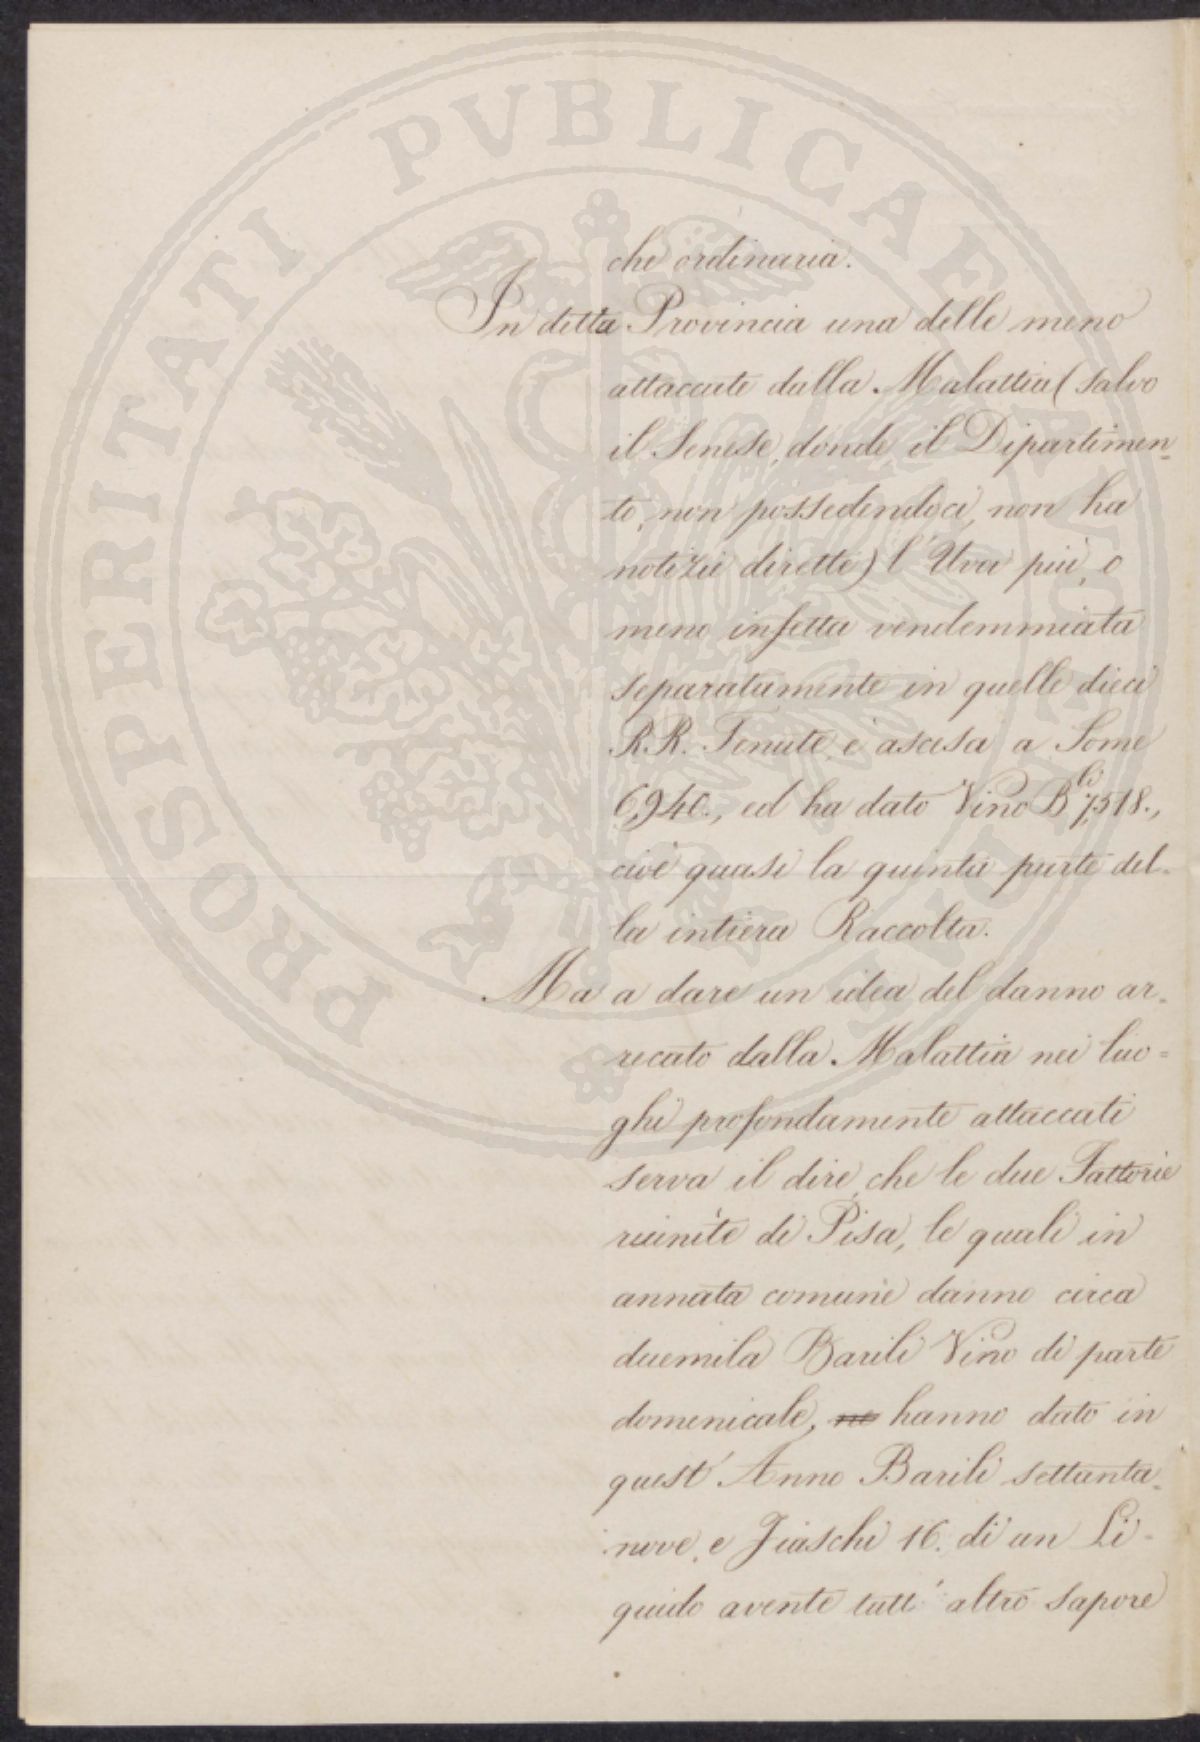 che ordinaria.
In detta Provincia una delle meno
attaccate dalla Malattia (salvo
il Senese, donde il Dipartimen=
to, non possedendoci, non ha
notizie dirette) l'Uva più, o
meno infetta vendemmiata
separatamente in quelle dieci
R.R. Tenute, è ascesa a Some
6,940., ed ha dato Vino B.li 7,518.,
cioè quasi la quinta parte del=
la intiera Raccolta.
Ma a dare un idea del danno ar=
recato dalla Malattia nei luo=
ghi profondamente attaccati
serva il dire, che le due Fattorie
riunite di Pisa, le quali in
annata comune danno circa
duemila Barili Vino di parte
domenicale, ne hanno dato in
quest'Anno Barili settanta=
nove, e Fiaschi 16. di un Li=
quido avente tutt'altro sapore
PROSPERITATI PVBLICAE